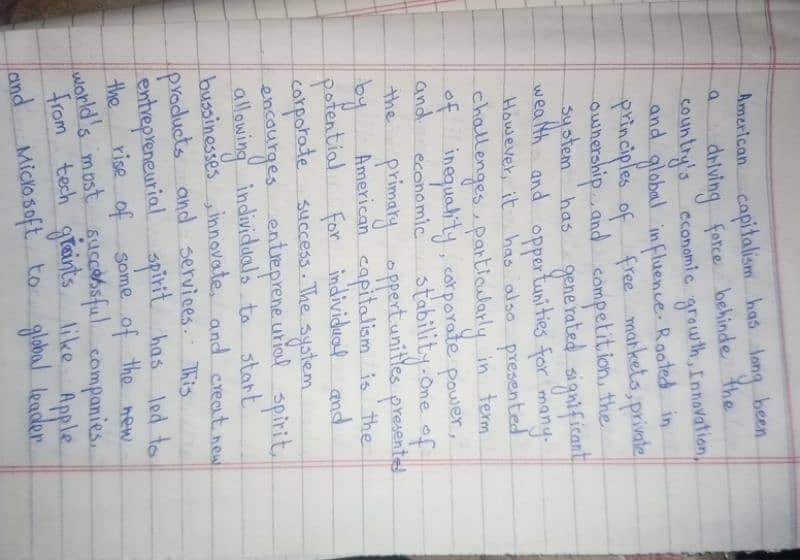 American capitalism has long been
a driving force behinde the
country's economic growth, Innovation,
and global influence. Rooted in
principles of free markets, private
ownership, and competition, the
system has generated significant
wealth and opportunities for many.
However, it has also presented
challenges, particularly in term
of inequality, corporate power,
and economic stability. One of
the primary oppertunities presented
by American capitalism is the
potential for individual and
corporate success. The system
encourges entrepreneurial spirit,
allowing individuals to start
bussinesses, innovate, and creat new
products and services. This
entrepreneurial spirit has led to
the rise of some of the new
world's most successful companies,
from tech giaints like Apple
and Microsoft to global leader